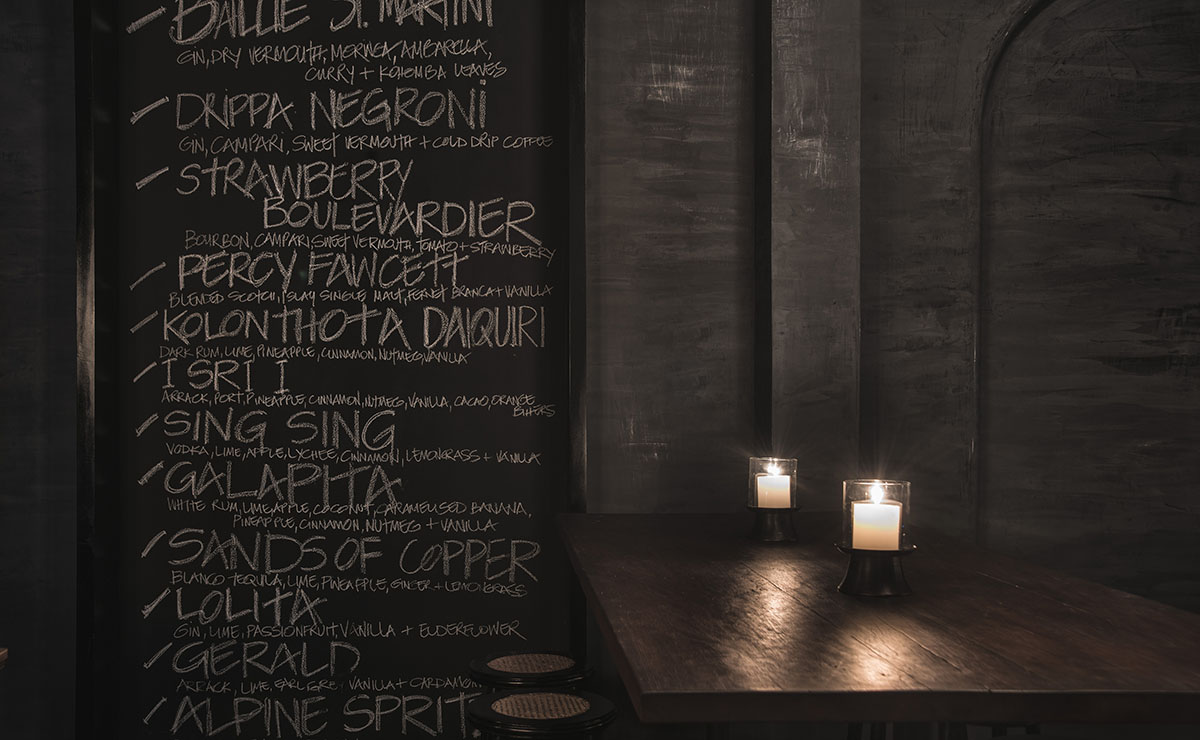 BAILLIE ST. MARTINI
GIN, DRY VERMOUTH, MORINGA, AMBARELLA,
CURRY + KOHOMBA LEAVES
DRIPPA NEGRONI
GIN, CAMPARI, SWEET VERMOUTH + COLD DRIP COFFEE
STRAWBERRY
BOULEVARDIER
BOURBON, CAMPARI, SWEET VERMOUTH, TOMATO + STRAWBERRY
PERCY FAWCETT
BLENDED SCOTCH, ISLAY SINGLE MALT, FERNET BRANCA + VANILLA
KOLONTHOTA DAIQUIRI
DARK RUM, LIME, PINEAPPLE, CINNAMON, NUTMEG, VANILLA
I SRI I
ARRACK, PORT, PINEAPPLE, CINNAMON, NUTMEG, VANILLA, CACAO, ORANGE
BITTERS
SING SING
VODKA, LIME, APPLE, LYCHEE, CINNAMON, LEMONGRASS + VANILLA
GALAPITA
WHITE RUM, LIME, APPLE, COCONUT, CARAMELISED BANANA,
PINEAPPLE, CINNAMON, NUTMEG + VANILLA
SANDS OF COPPER
BLANCO TEQUILA, LIME, PINEAPPLE, GINGER + LEMONGRASS
LOLITA
GIN, LIME, PASSIONFRUIT, VANILLA + ELDERFLOWER
GERALD
ARRACK, LIME, EARL GREY, VANILLA + CARDAMOM
ALPINE SPRIT